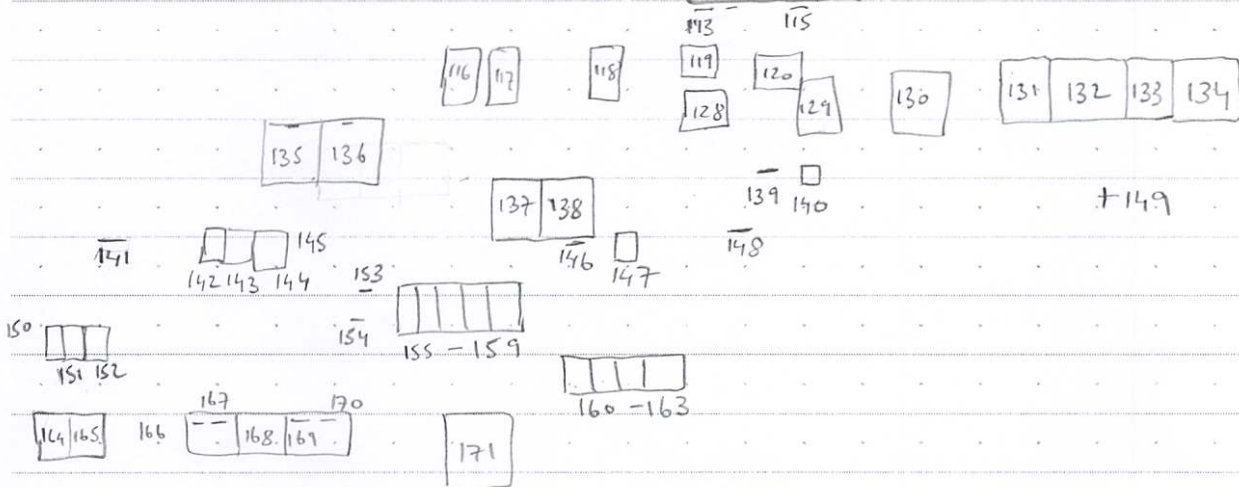 113 115
116 117 118 119 120
128 129 130 131 132 133 134
135 136
137 138 139 140 +149
141 142 143 144 145 146 147 148
153
150 151 152 154 155-159
160-163
167 170
164 165 166 168 169
171